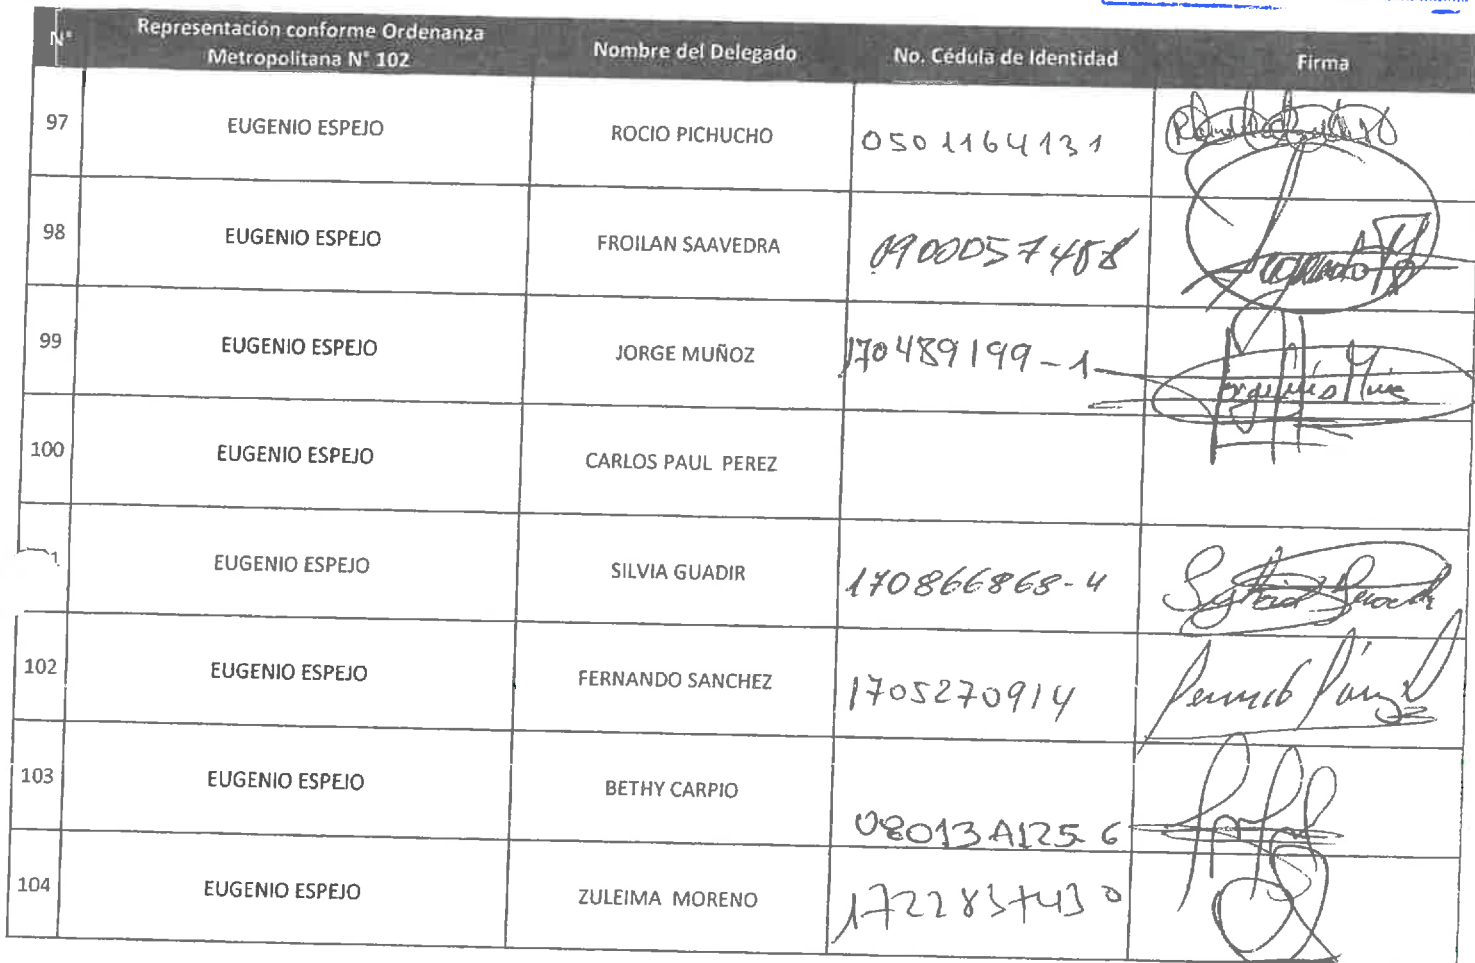 N° Representación conforme Ordenanza Metropolitana N° 102 Nombre del Delegado No. Cédula de Identidad Firma
97 EUGENIO ESPEJO ROCIO PICHUCHO 0501164131
98 EUGENIO ESPEJO FROILAN SAAVEDRA
99 EUGENIO ESPEJO JORGE MUÑOZ 170489199-1
100 EUGENIO ESPEJO CARLOS PAUL PEREZ
1 EUGENIO ESPEJO SILVIA GUADIR 170866868-4
102 EUGENIO ESPEJO FERNANDO SANCHEZ 1705270914
103 EUGENIO ESPEJO BETHY CARPIO
104 EUGENIO ESPEJO ZULEIMA MORENO